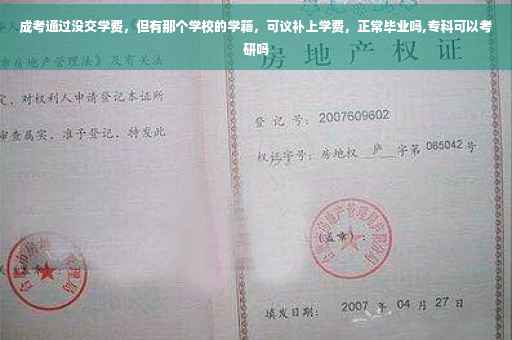 成考通过没交学费，但有那个学校的学籍，可议补上学费，正常毕业吗,专科可以考
研吗
房地产权证
市房地产管理法》及有关法
定，对权利人申请登记本证所
审查属实，准予登记，特发此
登记号：2007609602
权证字号：房地权 庐 字第 085042 号
(盖章)：
填发日期： 2007 年 04 月 27 日